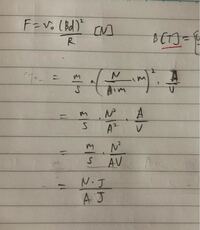 F = v₀ (Bd)²/R [N] B [T] =
= m/s · (N/A·m · m)² · A/V
= m/s · N²/A² · A/V
= m/s · N²/AV
= N·J/A J